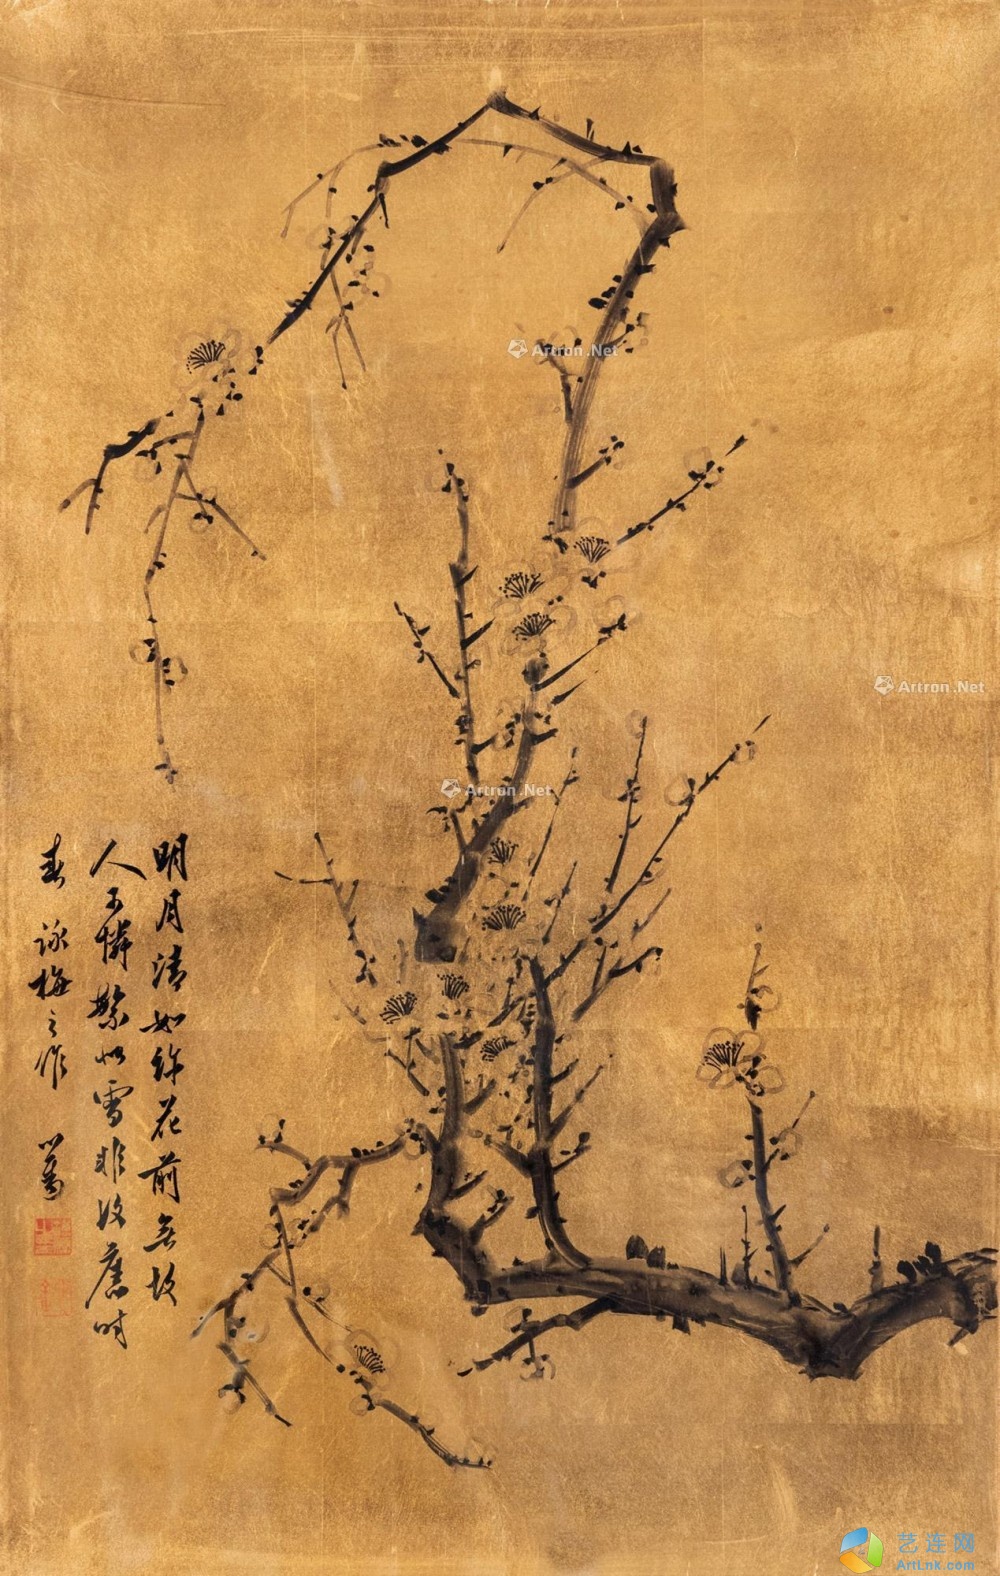 明月清如許花前無故
人不憐繁似雪非復舊時
春 詠梅之作 溥
Artron.Net
Artron.Net
Artron.Net
艺连网
ArtLnk.com